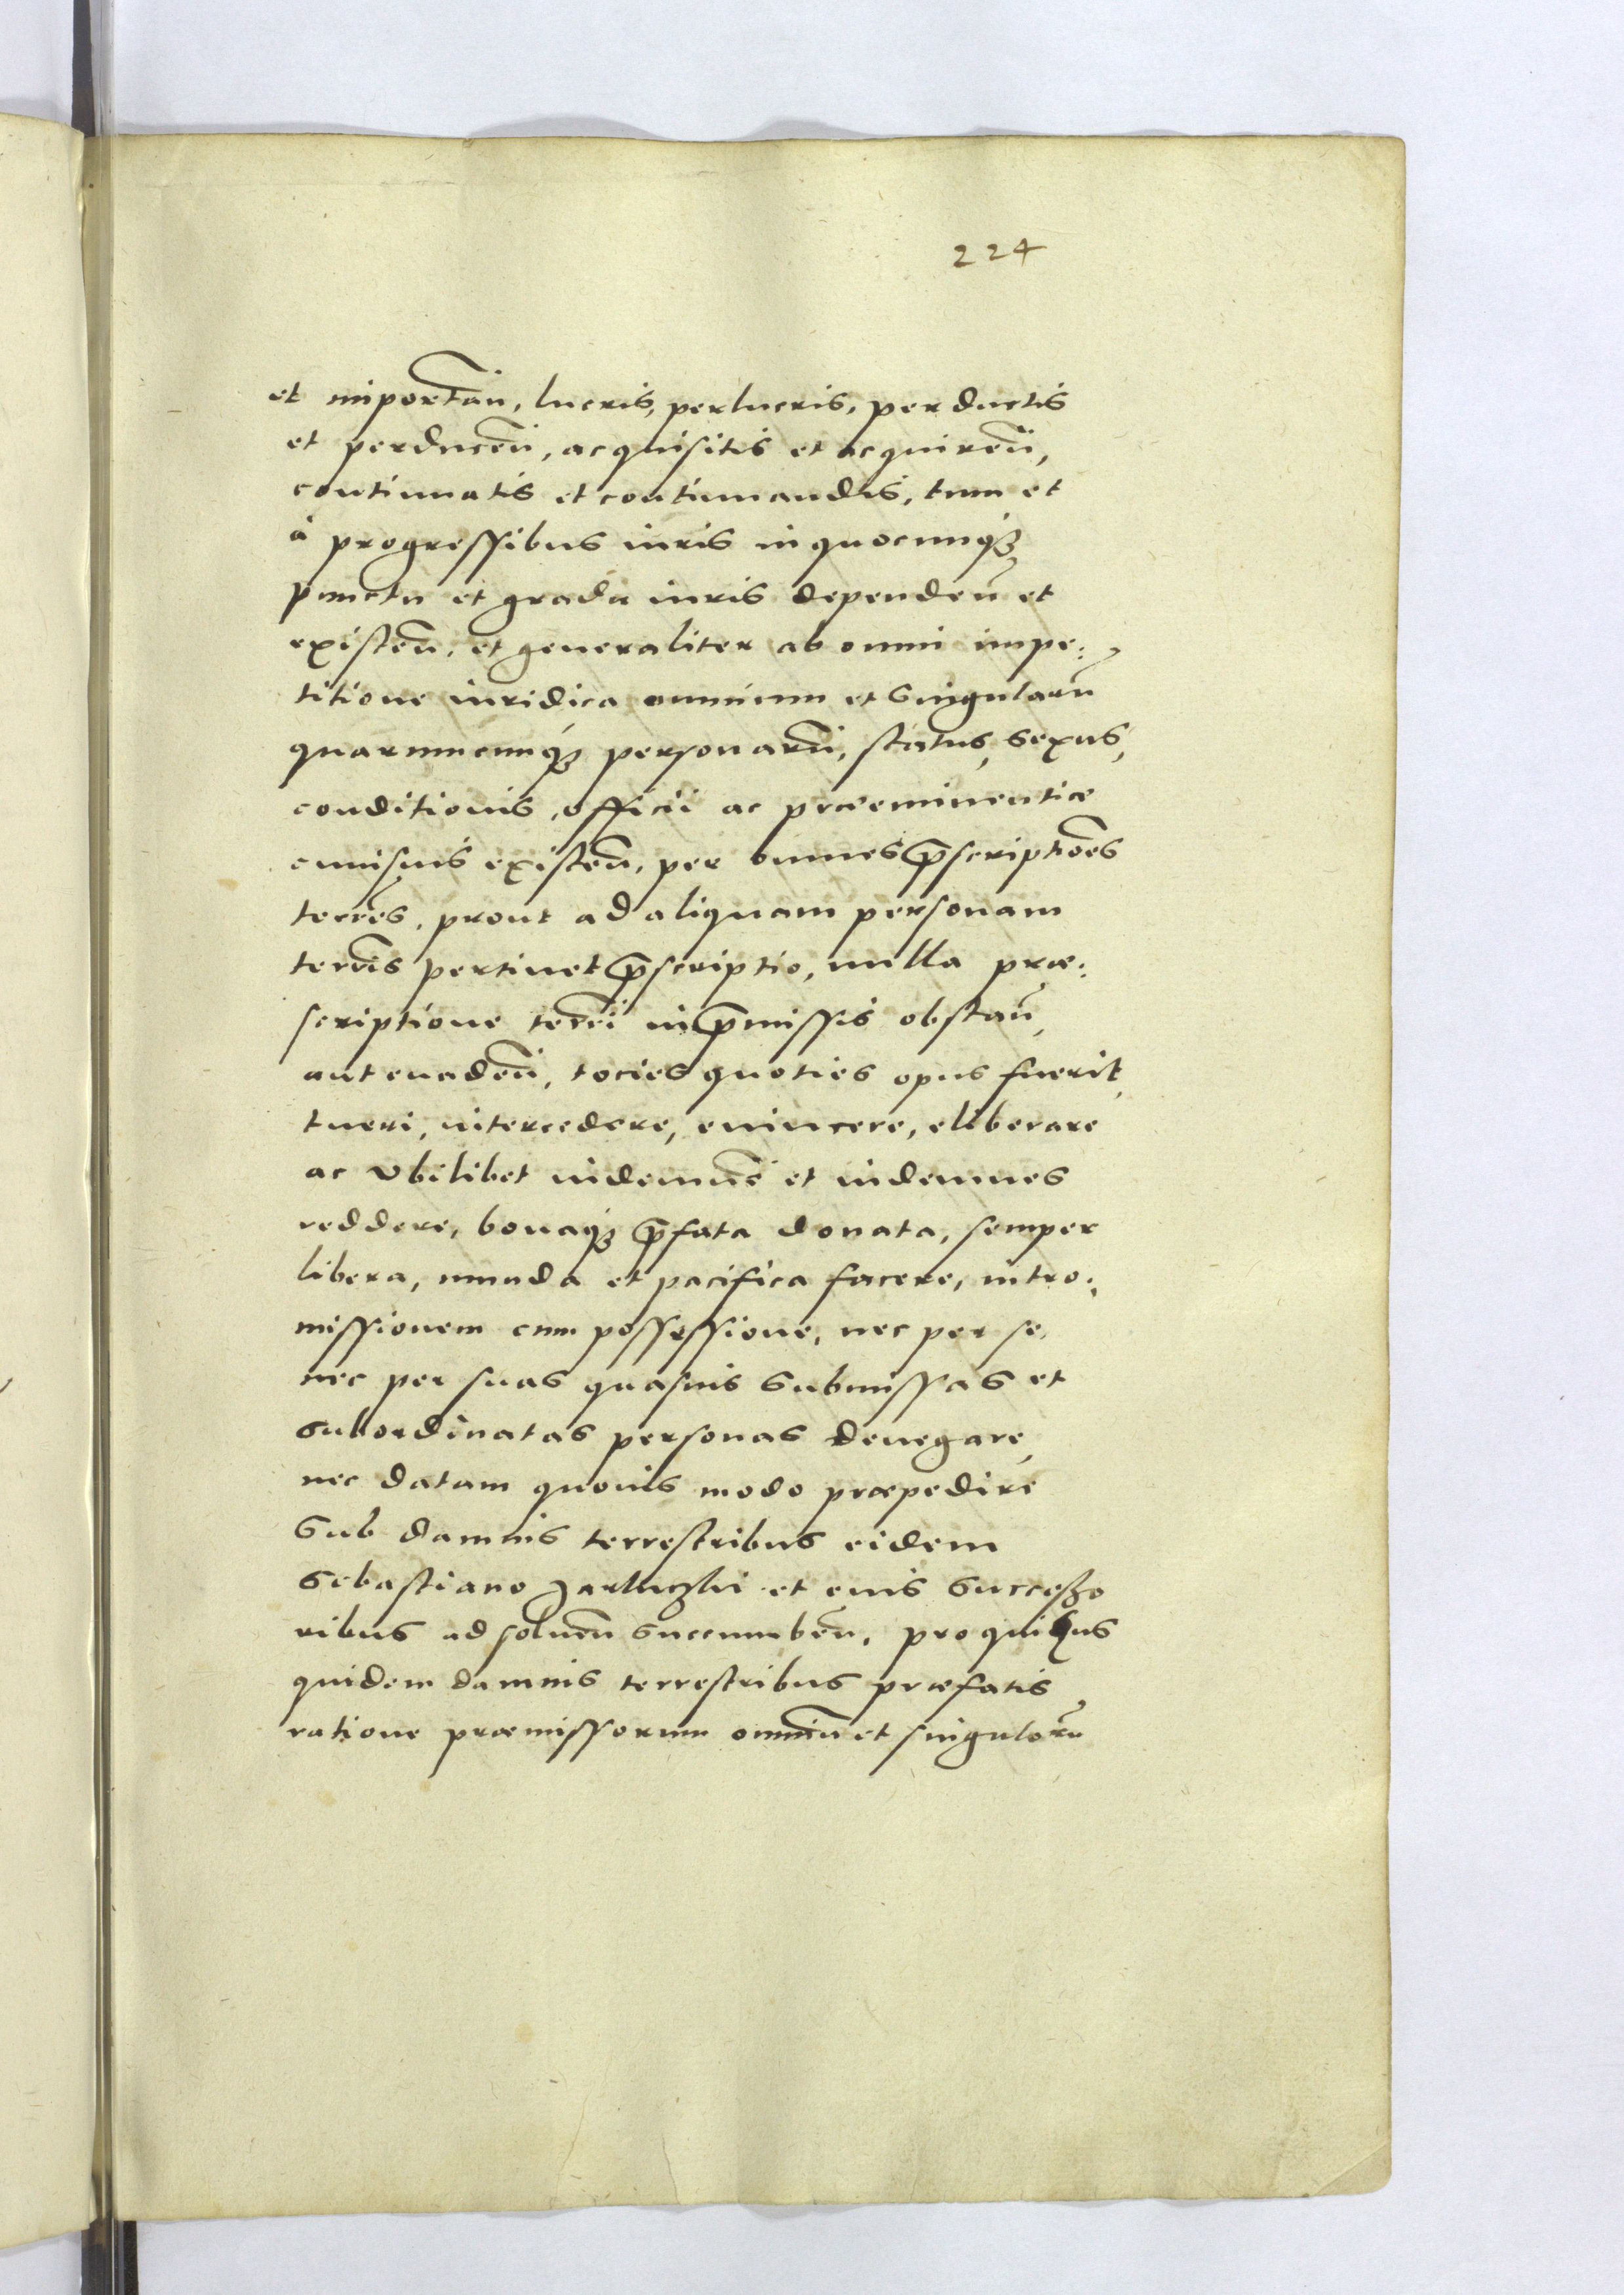 224
et importan̄, lucris, perlucris, perductis
et perducen̄, acquisitis et acquiren̄,
continuatis et continuandis, tum et
à progressibus iuris in quocunq₃
punctu et gradu iuris dependen̄ et
existen̄, et generaliter ab omni impe:
titione iuridica omnium et singularū
quarumcunq₃ personarū, status, sexus,
conditionis, officii ac præeminentiæ
cuiusuis existen̄, per omnes p̄scriptiōes
terrēs, prout ad aliquam personam
terrīs pertinet p̄scriptio, nulla præ:
scriptione terrī in p̄missis obstan̄,
aut euaden̄, tocies quoties opus fuerit,
tueri, intercedere, euincere, eliberare
ac vbilibet indemnē et indemnes
reddere, bonaq₃ p̄fata donata, semper
libera, munda et pacifica facere, intro:
missionem cum possessione, nec per se,
nec per suas quasuis submissas et
subordinatas personas denegare,
nec datam quouis modo præpedire
sub damnis terrestribus eidem
Sebastiano et euis successo
ribus ad soluen̄ succumben̄, pro quibus
quidem damnis terrestribus præfatis,
ratione præmissorum omniū et singulorū